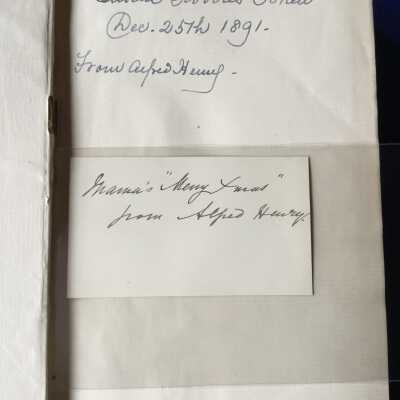 Dec. 25th 1891.
From Alfred Henry.
Mama's "Merry Xmas"
from Alfred Henry.